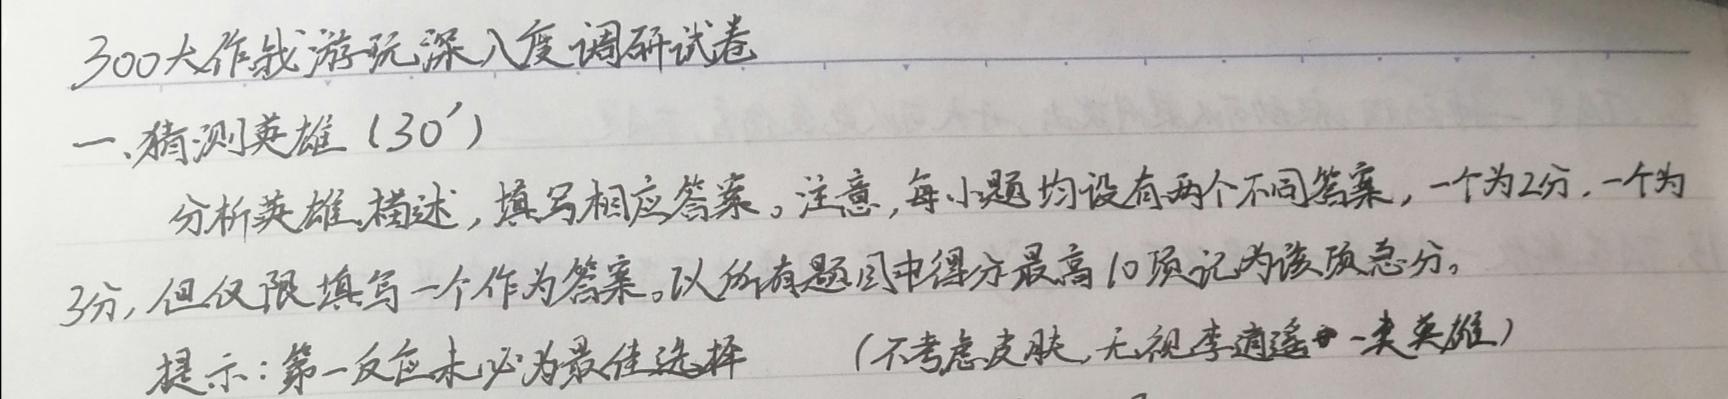 300大作战游玩深入度调研试卷
一、猜测英雄（30′）
分析英雄描述，填写相应答案。注意，每小题均设有两个不同答案，一个为2分，一个为
3分，但仅限填写一个作为答案。以所有题目中得分最高10项记为该项总分。
提示：第一反应未必为最佳选择 （不考虑皮肤，无视李逍遥一类英雄）